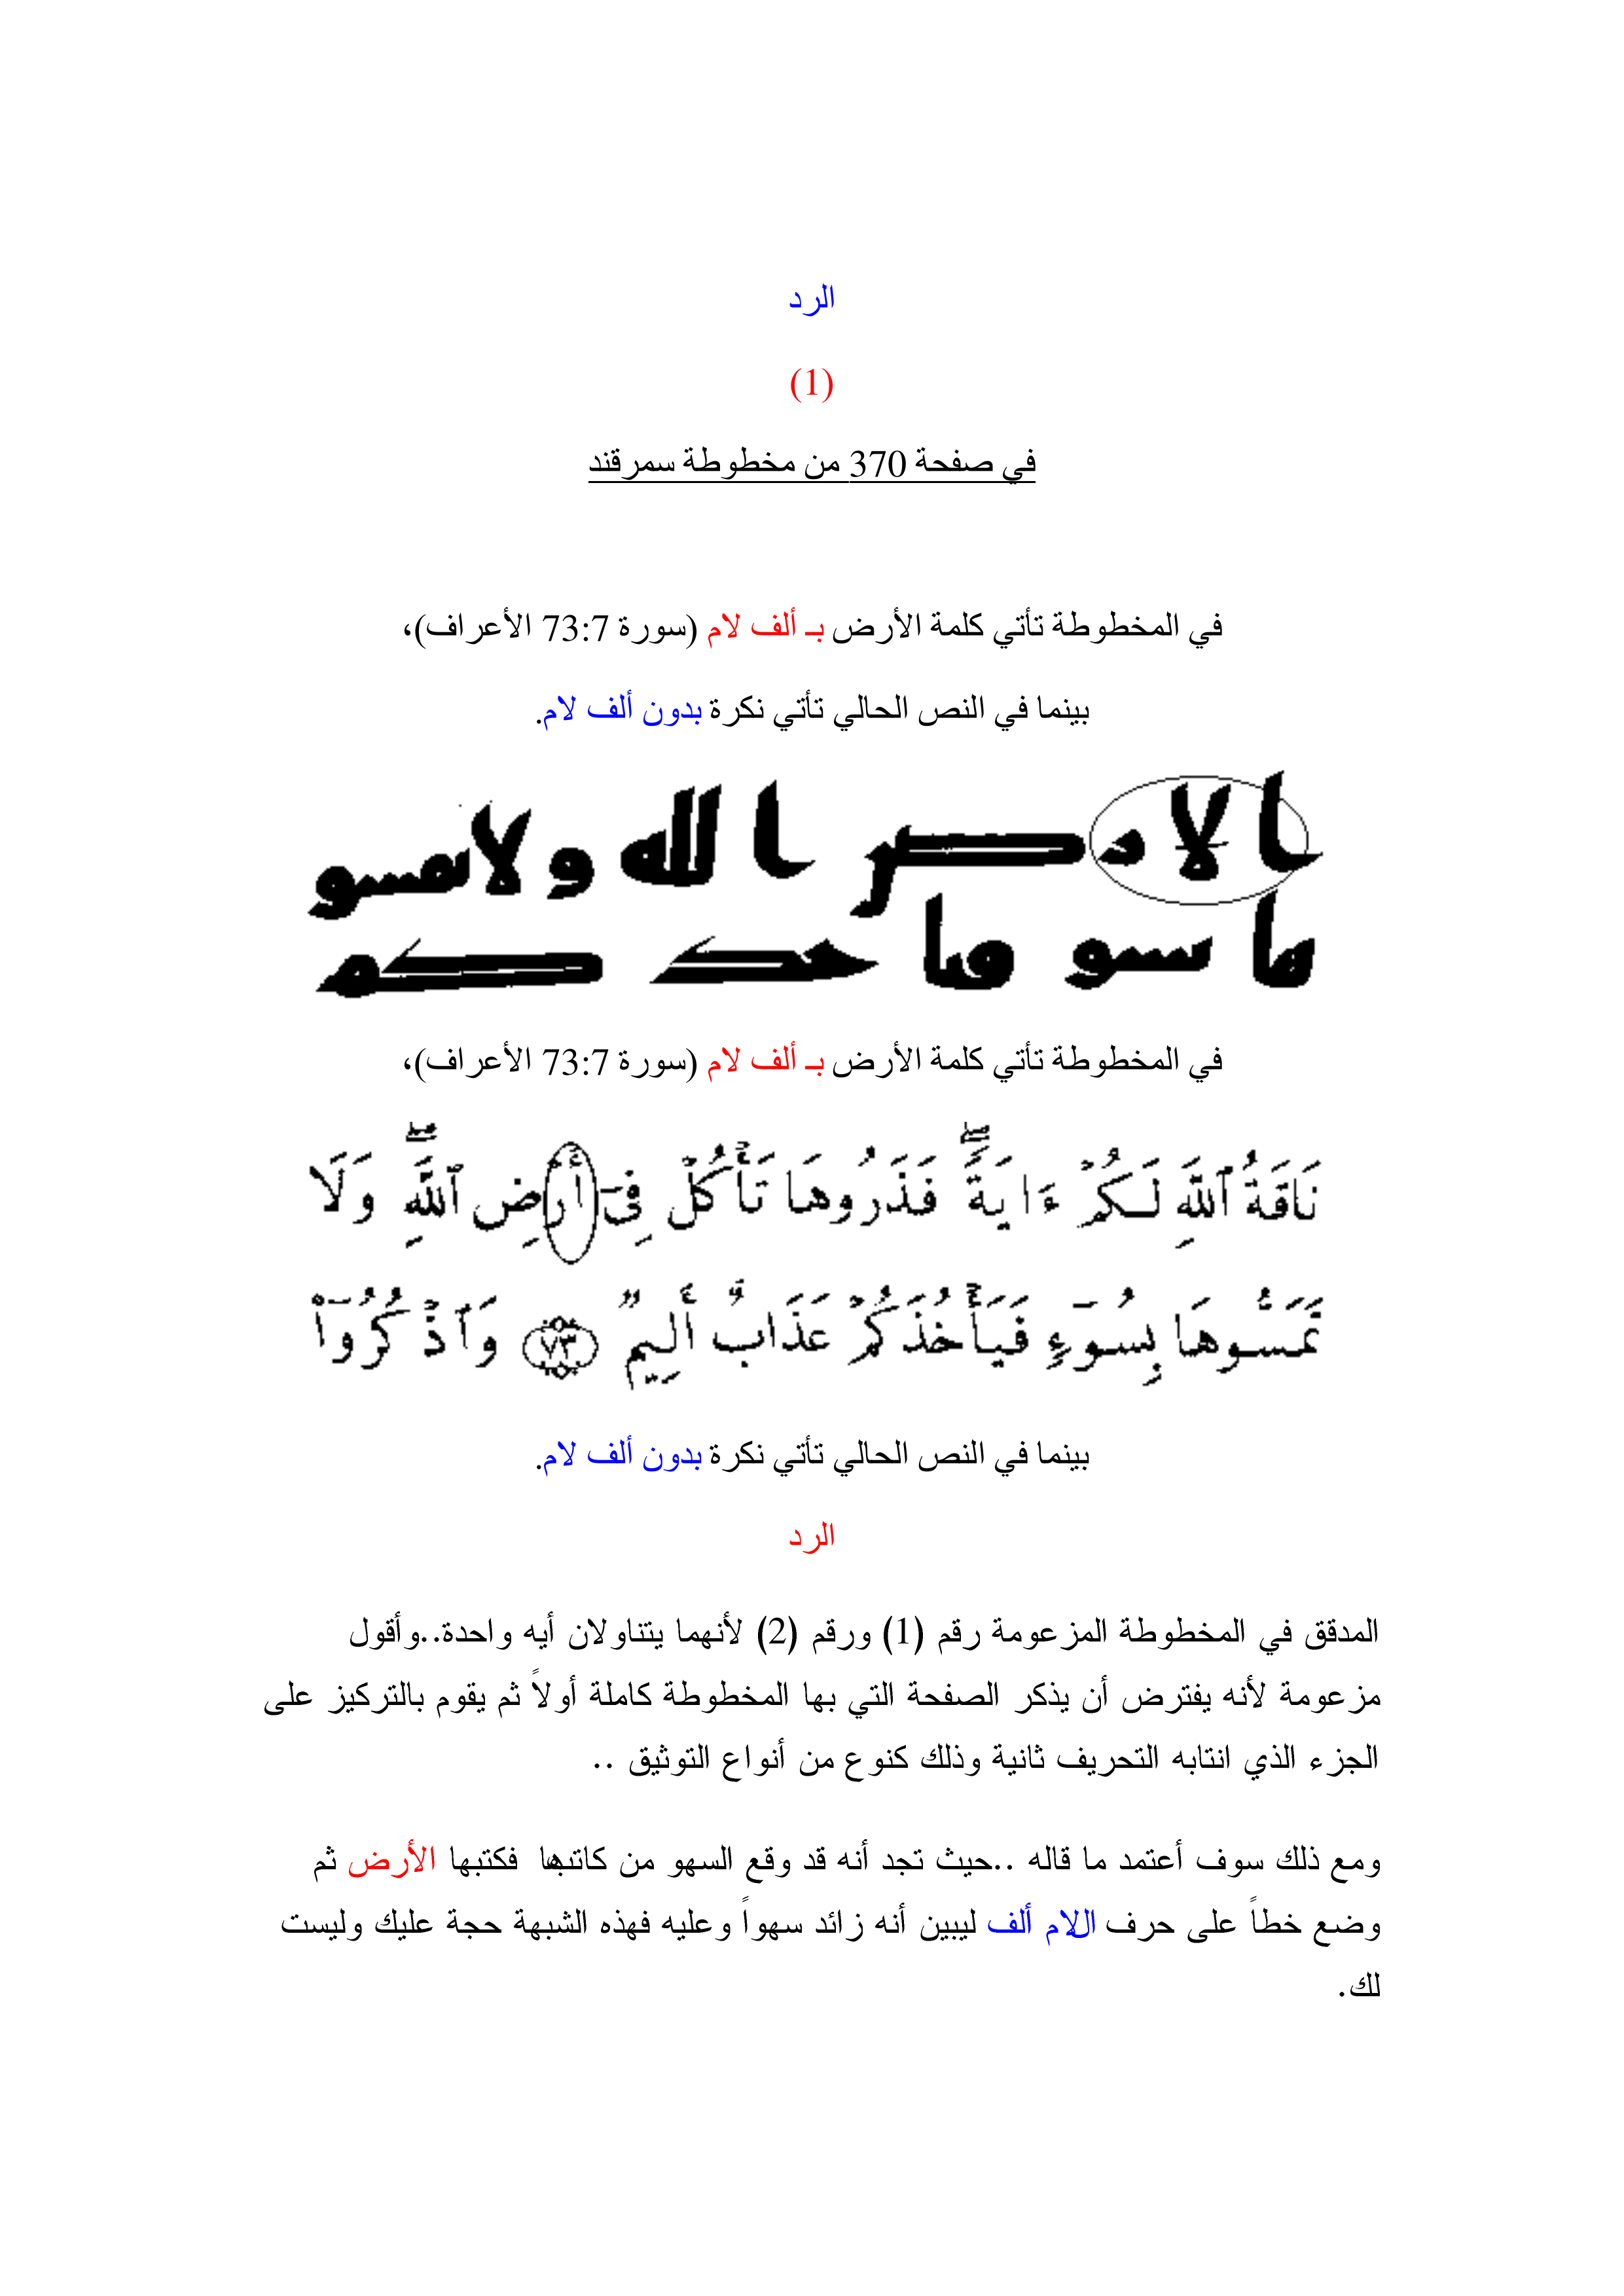 الرد
(1)
في صفحة 370 من مخطوطة سمرقند
في المخطوطة تأتي كلمة الأرض بـ ألف لام (سورة 73:7 الأعراف)،
بينما في النص الحالي تأتي نكرة بدون ألف لام.
ا لا ر ض ا لله و لا تمسو
ها سو فيا خذ كم
في المخطوطة تأتي كلمة الأرض بـ ألف لام (سورة 73:7 الأعراف)،
نَاقَةُ ٱللَّهِ لَكُمْ ءَايَةً ۖ فَذَرُوهَا تَأْكُلْ فِىٓ أَرْضِ ٱللَّهِ ۖ وَلَا
تَمَسُّوهَا بِسُوٓءٍ فَيَأْخُذَكُمْ عَذَابٌ أَلِيمٌ ٧٣ وَٱذْكُرُوٓا۟
بينما في النص الحالي تأتي نكرة بدون ألف لام.
الرد
المدقق في المخطوطة المزعومة رقم (1) ورقم (2) لأنهما يتناولان أيه واحدة..وأقول
مزعومة لأنه يفترض أن يذكر الصفحة التي بها المخطوطة كاملة أولاً ثم يقوم بالتركيز على
الجزء الذي انتابه التحريف ثانية وذلك كنوع من أنواع التوثيق ..
ومع ذلك سوف أعتمد ما قاله ..حيث تجد أنه قد وقع السهو من كاتبها فكتبها الأرض ثم
وضع خطاً على حرف اللام ألف ليبين أنه زائد سهواً وعليه فهذه الشبهة حجة عليك وليست
لك.